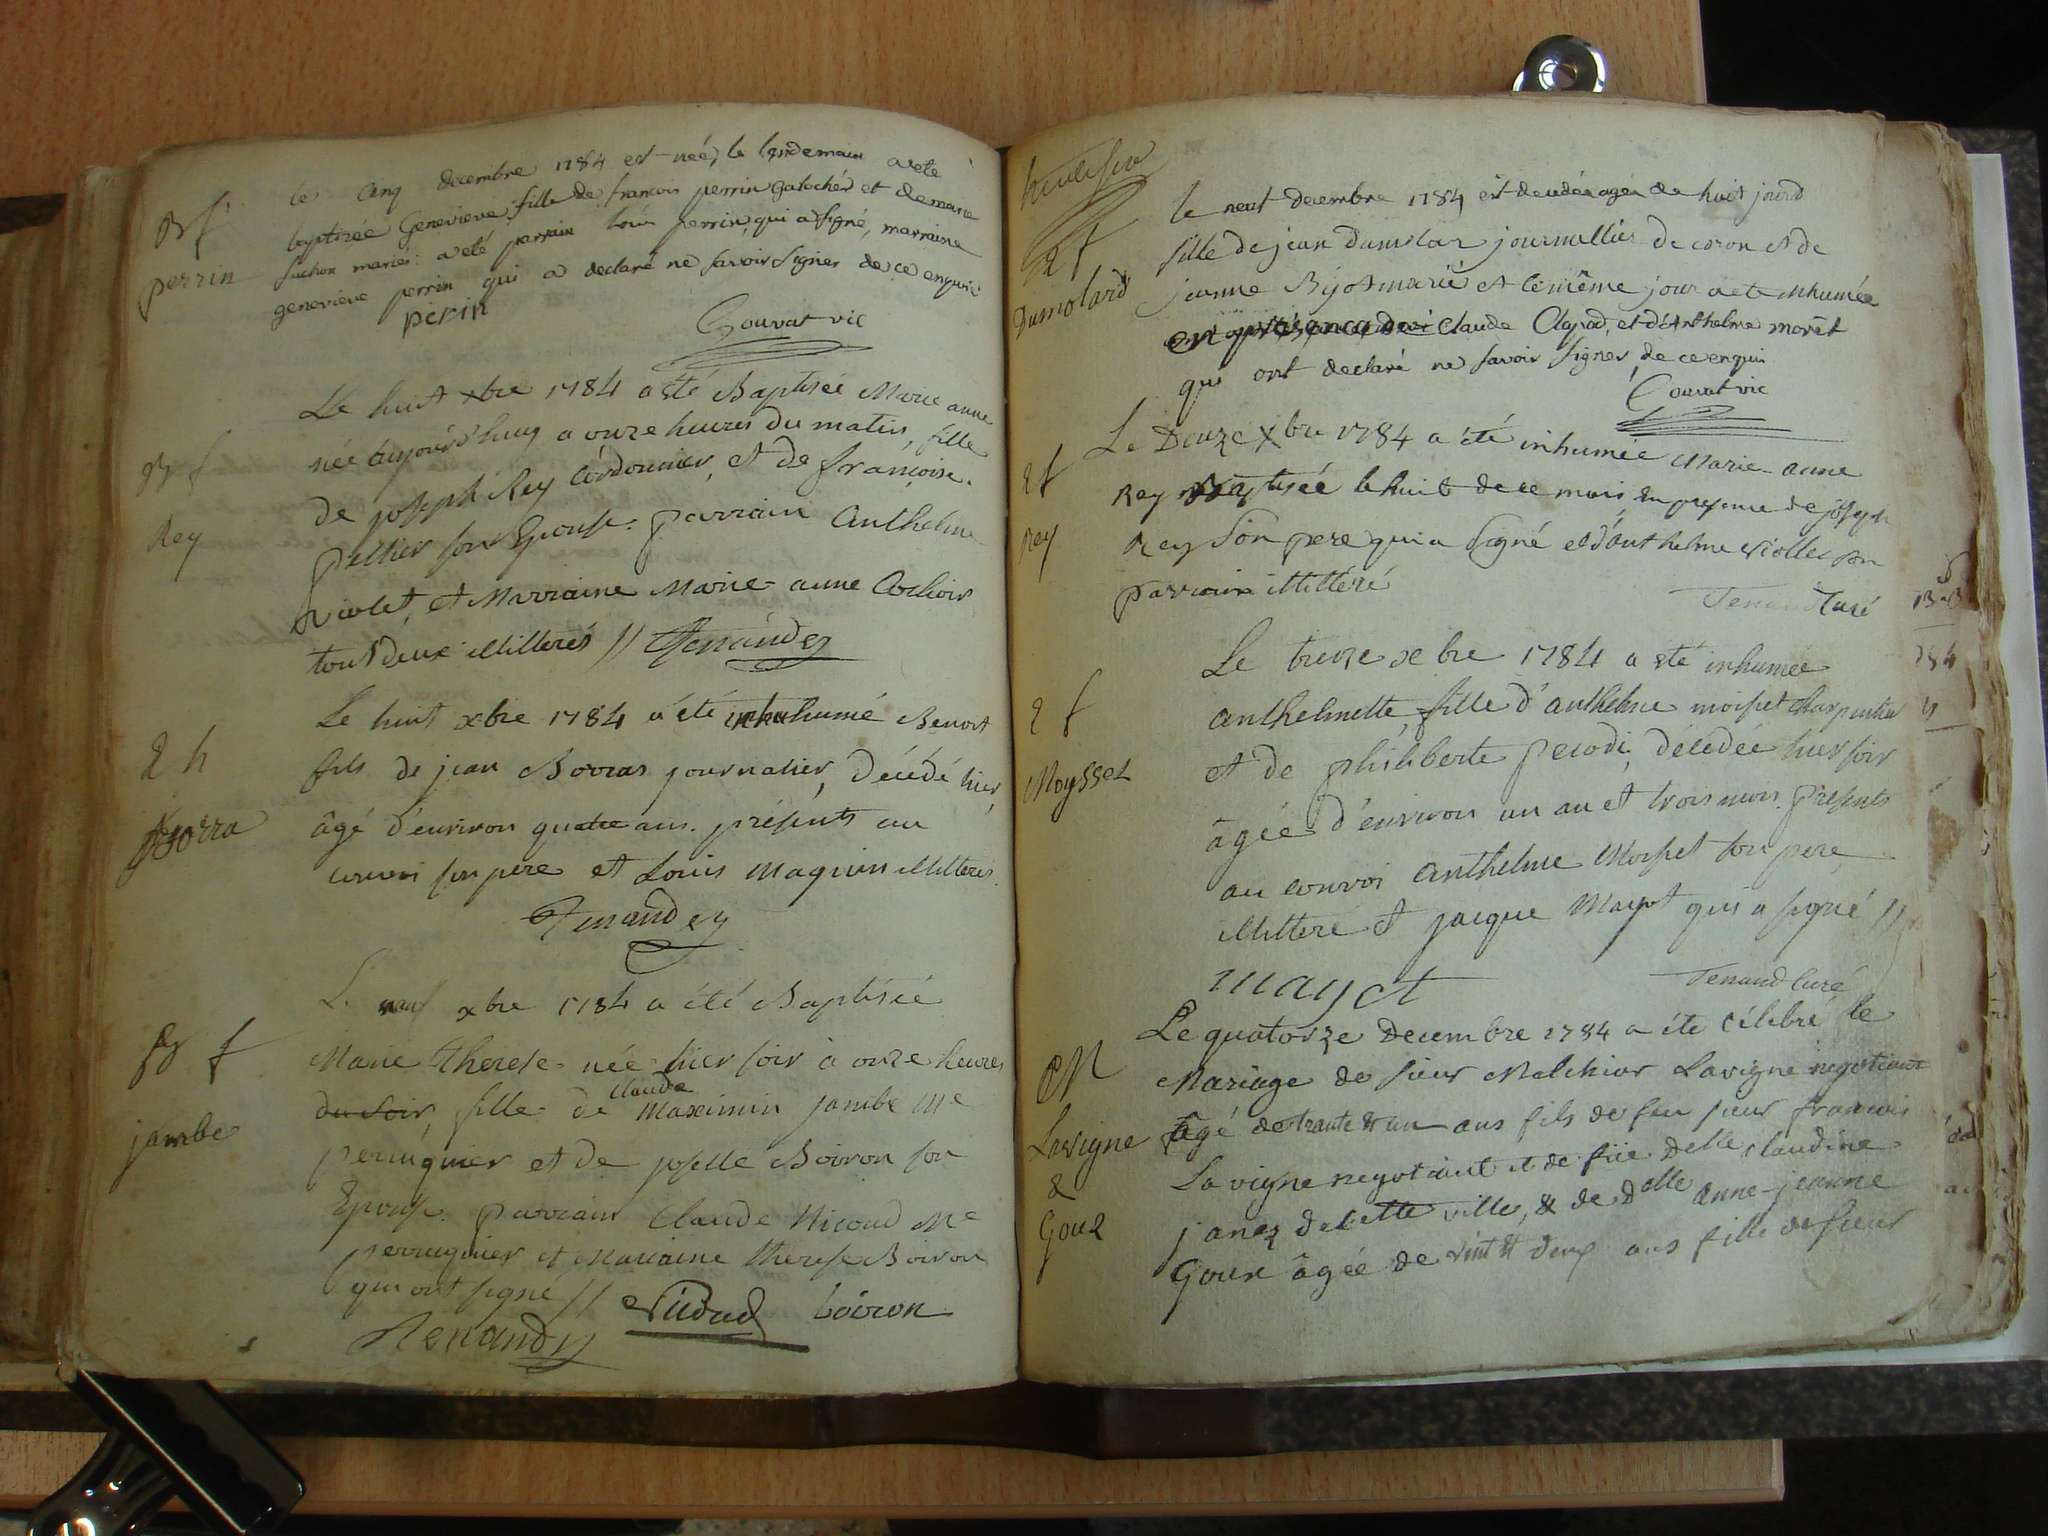 B f
perrin
le cinq decembre 1784 est née, le lendemain a eté
baptisée Genevieve, fille de francois perrin galochér et de marie
suchon mariés: a eté parrain louis perrin qui a signé, marraine
genevieve perrin qui a declaré ne savoir signer de ce enquis
perin
Gouvat vic
B f
Rey
Le huit xbre 1784 a été Baptisée Marie anne
née aujourd'huy a onze heures du matin, fille
de joseph Rey Cordonnier, et de françoise
peltier son Epouse. parrain Anthelme
violet, et Marraine Marie-anne
tous deux illitterés // Tenand
2 h
Borra
Le huit xbre 1784 a été inhumé Benoit
fils de jean Borras journalier, décédé hier,
âgé d'environ quatre ans. présents au
convoi son pere et Louis Magnin illitterés.
Tenand
B f
jambe
Le neuf xbre 1784 a été Baptisée
Marie therese née hier soir à onze heures
du soir, fille de claude maximin jambe Me
perruquier et de joselle Boiron son
Epouse. parrain Claude Nicoud Me
perruquier et Marraine therese Boiron
qui ont signé // Nicoud boiron
Tenand
2 f
Dumolard
le neuf decembre 1784 est decedée agée de huit jours
fille de jean dumolar journallier de coron et de
jeanne Bijot marié et le même jour a eté inhumée
en présence de Claude Clapod, et d'Anthelme morêt
qui ont declaré ne savoir signer de ce enquis
Gouvat vic
2 f
Rey
Le Douze Xbre 1784 a été inhumée Marie-anne
Rey Baptisée le huit de ce mois en presence de joseph
Rey Son pere qui a signé et d'anthelme Viollet son
parrain illitéré
Tenand Curé
2 f
Moysset
Le treize xbre 1784 a été inhumée
anthelmette, fille d'anthelme moisset charpentier
et de philiberte perodi, décédée hier soir
âgée d'environ un an et trois mois. présents
au convoi anthelme Moisset son pere
illitteré et jacque Mayot qui a signé //
mayot
Tenand Curé
M
Lavigne
&
Goux
Le quatorze Decembre 1784 a été célébré le
Mariage de sieur Melchior Lavigne negotiant
âgé de trante et un ans fils de feu sieur francois
Lavigne negotiant et de feüe Delle claudine
janez de cette ville, & de Delle anne-jeanne
Goux âgée de vint et deux ans fille de sieur